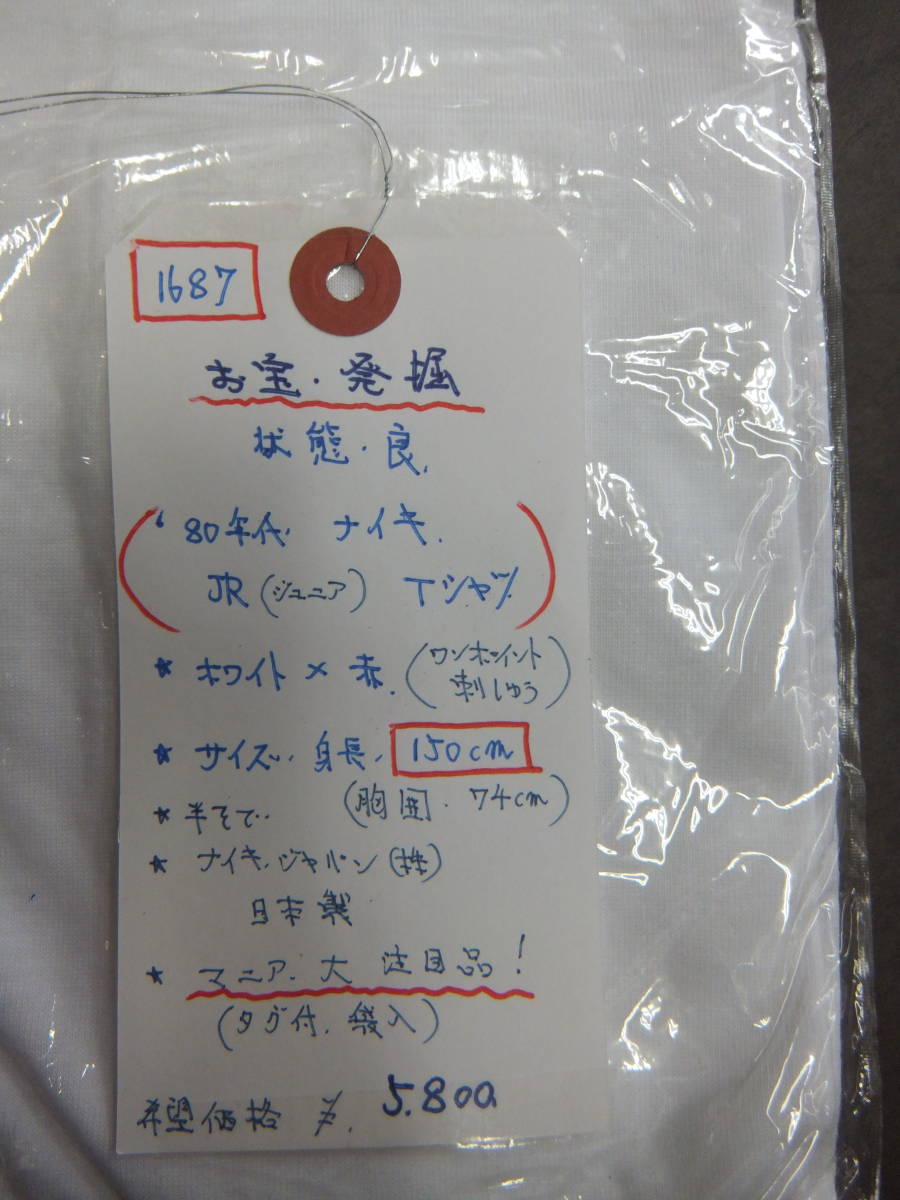 1687
お宝・発掘
状態・良.
'80年代 ナイキ.
JR(ジュニア) Tシャツ
★ ホワイト×赤.(ワンポイント
刺しゅう)
★ サイズ.身長.150cm
(胸囲・74cm)
★ 半そで.
★ ナイキ.ジャパン(株)
日本製
★ マニア.大 注目品!
(タグ付.袋入)
希望価格 ¥.5.800